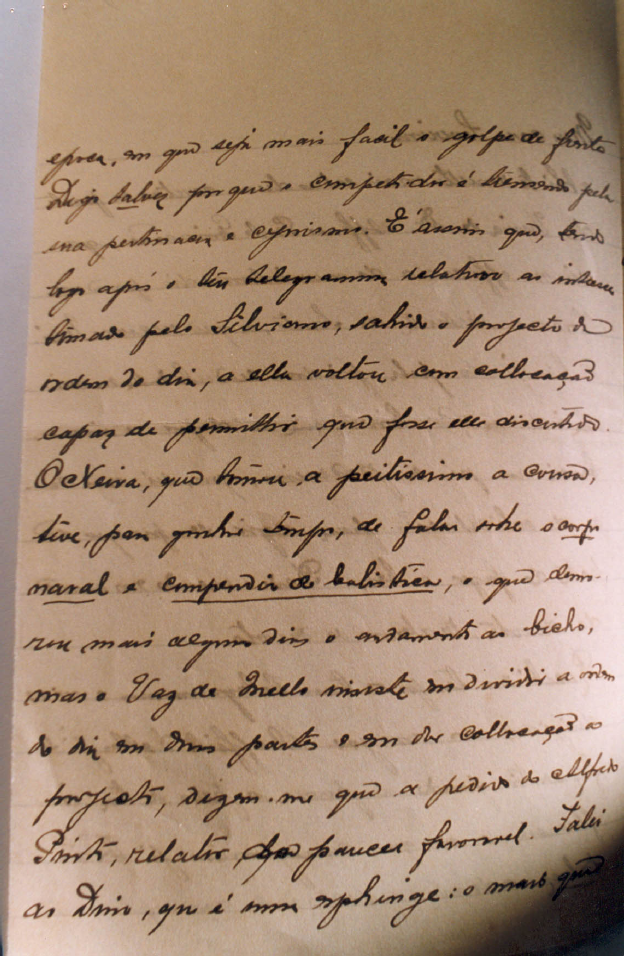 epoca, em que seja mais facil o golpe de frente
Digo talvez porque o competidor é tremendo pela
sua pertinacia e cynismo. É assim que, tendo
logo após o teu telegramma relativo ao
tomado pelo Silviano, sahido o projecto da
ordem do dia, a ella voltou com collocação
capaz de permittir que fosse elle discutido.
O Neiva, que tomou a peitissimo a cousa,
teve, para ganhar tempo, de falar sobre o corpo
naval e compendio de balistica, o que demo-
rou mais alguns dias o andamento ao bicho,
mas o Vaz de Mello insiste em dividir a ordem
do dia em duas partes e em dar collocação ao
projecto, dizem-me que a pedido do Alfredo
Pinto, relator do parecer favoravel. Falei
ao Dino, que é uma esphinge: o mais que